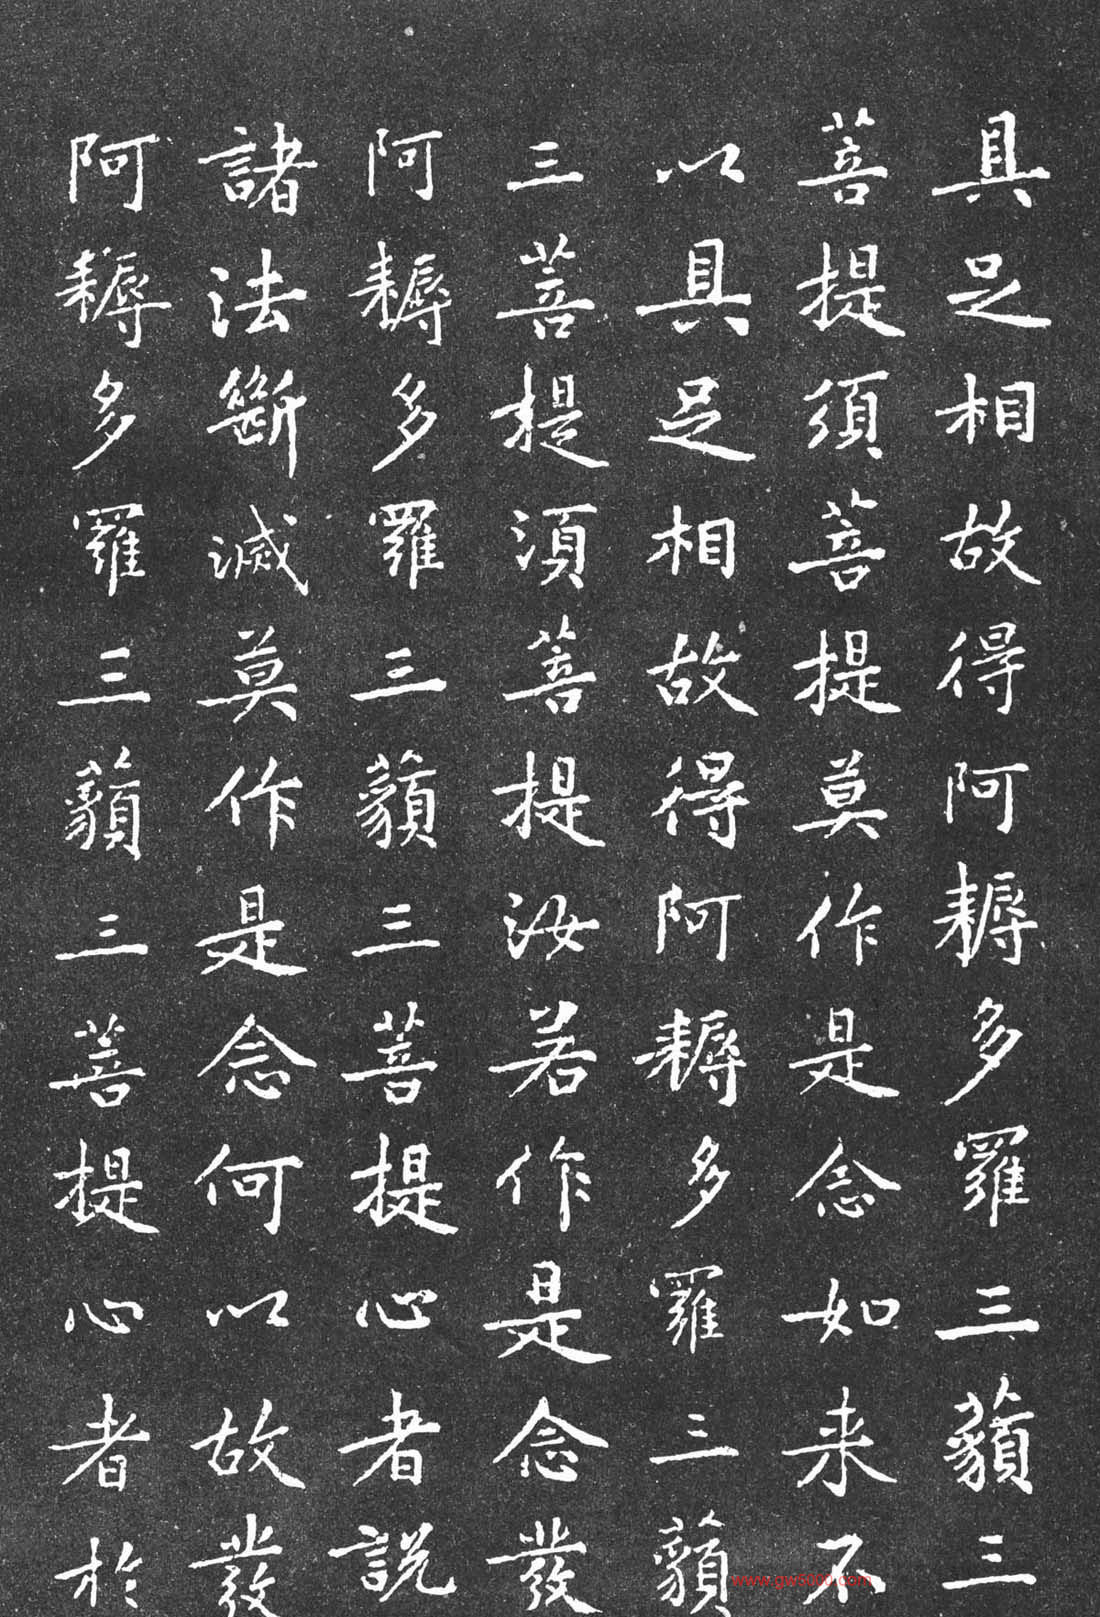 具足相故得阿耨多羅三藐三
菩提須菩提莫作是念如来不
以具足相故得阿耨多羅三藐
三菩提須菩提汝若作是念發
阿耨多羅三藐三菩提心者說
諸法斷滅莫作是念何以故發
阿耨多羅三藐三菩提心者於
www.gw5000.com